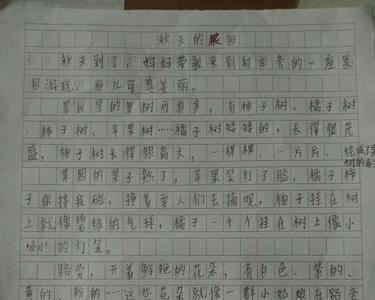 秋天的果园
秋天到了，妈妈带我来到村庄旁的一座果
园游玩，那儿可真美丽。
果园里的果树可真多，有柚子树、橘子树
、柿子树、苹果树……橘子树矮矮的，长得很茂
盛，柚子树长得很高大，一棵棵，一片片，
果园的果子熟了，苹果笑红了脸，橘子柿
子你挤我碰，挣着要人们去摘呢，柚子挂在树
上就像碧绿的气球，橘子一个个挂在树上像小
小的灯笼。
路旁，开着鲜艳的花朵，有白色、紫的、
黄的、粉的……这些花朵就像一群小姑娘在路旁